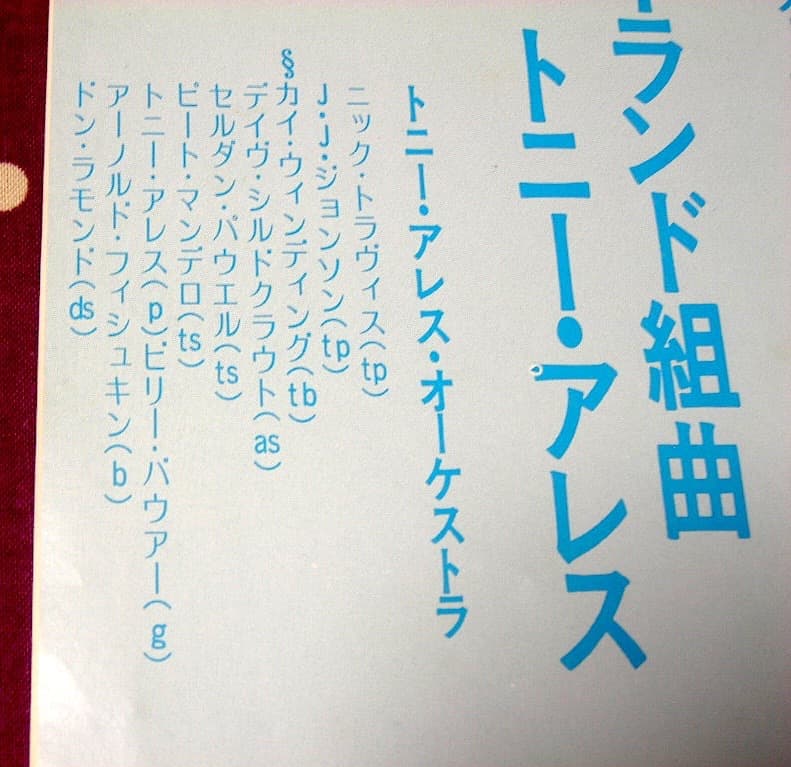 ランド組曲
トニー・アレス
トニー・アレス・オーケストラ
ニック・トラヴィス(tp)
J・J・ジョンソン(tp)
§カイ・ウィンディング(tb)
デイヴ・シルドクラウト(as)
セルダン・パウエル(ts)
ピート・マンデロ(ts)
トニー・アレス(p)ビリー・バウアー(g)
アーノルド・フィシュキン(b)
ドン・ラモンド(ds)